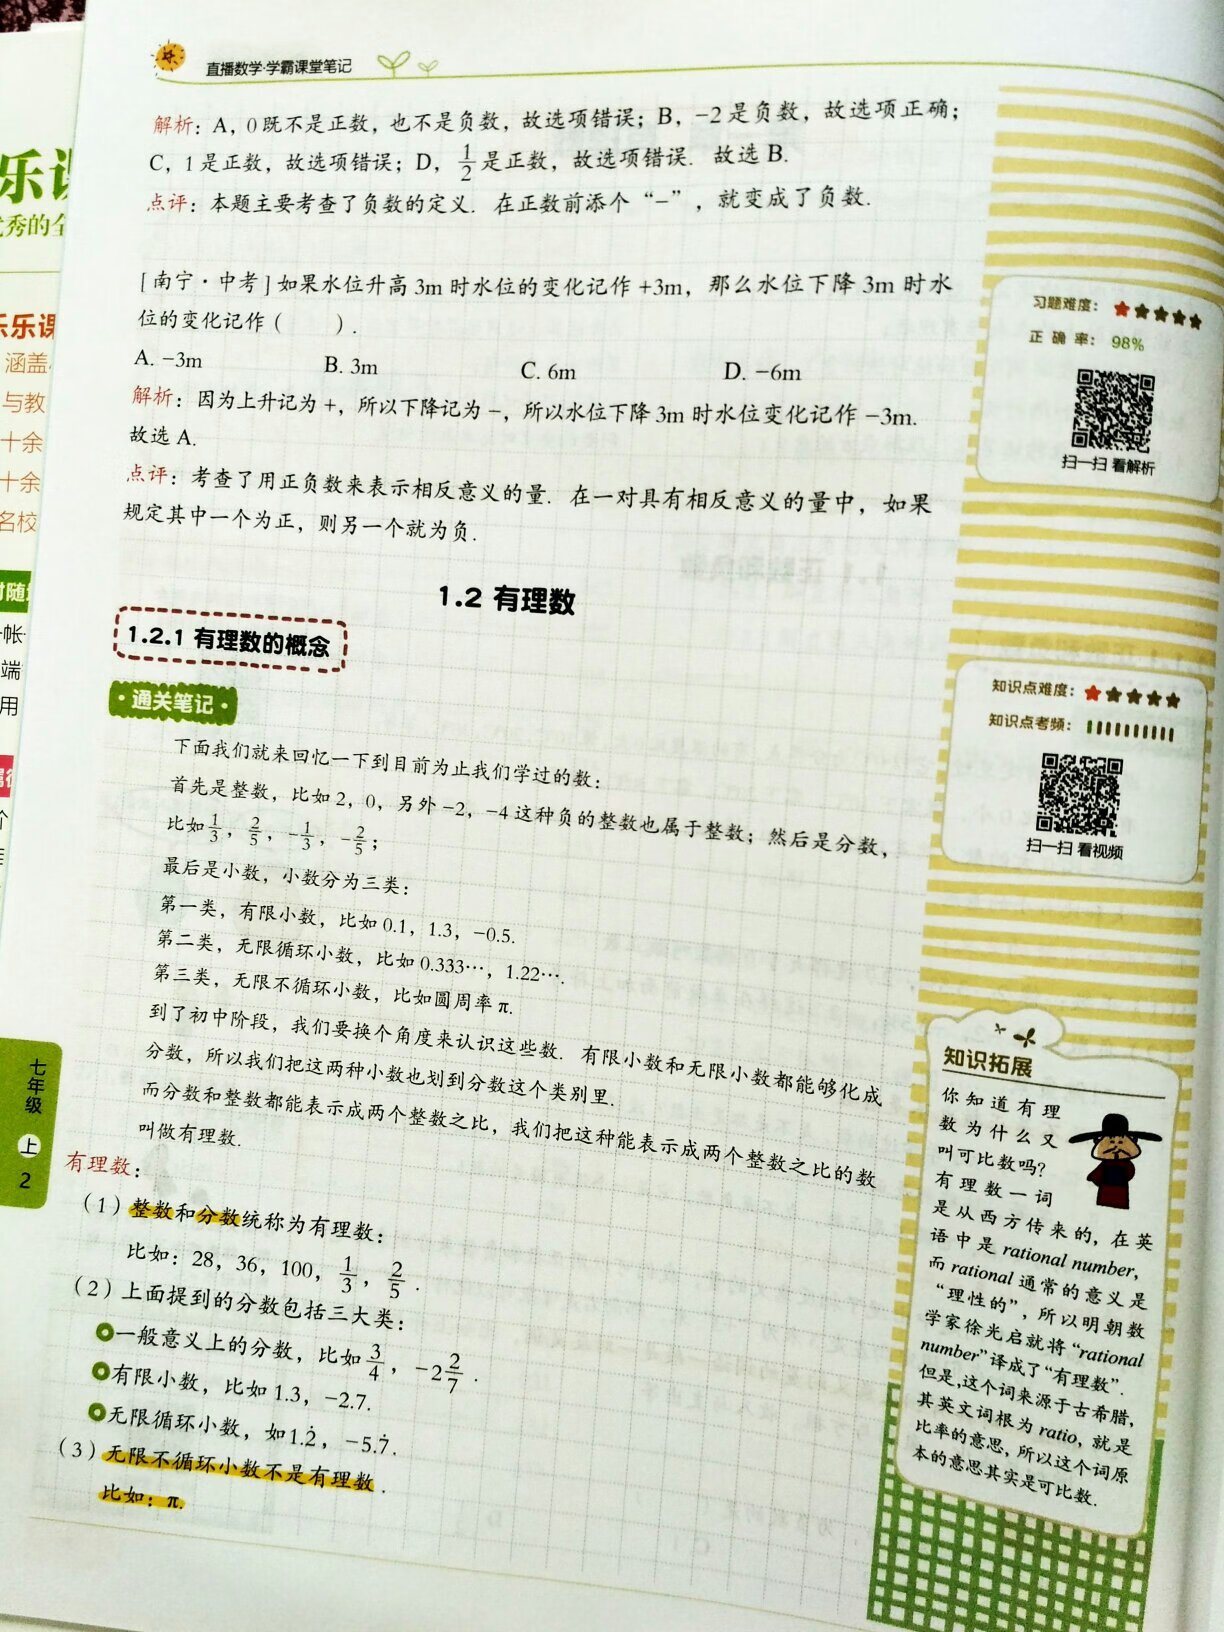 直播数学·学霸课堂笔记
解析：A，0既不是正数，也不是负数，故选项错误；B，−2是负数，故选项正确；
C，1是正数，故选项错误；D，1/2是正数，故选项错误．故选B.
点评：本题主要考查了负数的定义．在正数前添个“−”，就变成了负数.
[南宁·中考]如果水位升高3m时水位的变化记作+3m，那么水位下降3m时水
位的变化记作（　　）.
A. −3m　B. 3m　C. 6m　D. −6m
解析：因为上升记为+，所以下降记为−，所以水位下降3m时水位变化记作−3m.
故选A.
点评：考查了用正负数来表示相反意义的量．在一对具有相反意义的量中，如果
规定其中一个为正，则另一个就为负.
习题难度：★★★★★
正确率：98%
扫一扫 看解析
1.2 有理数
1.2.1 有理数的概念
·通关笔记·
下面我们就来回忆一下到目前为止我们学过的数：
首先是整数，比如2，0，另外−2，−4这种负的整数也属于整数；然后是分数，
比如1/3，2/5，−1/3，−2/5；
最后是小数，小数分为三类：
第一类，有限小数，比如0.1，1.3，−0.5.
第二类，无限循环小数，比如0.333…，1.22….
第三类，无限不循环小数，比如圆周率π.
到了初中阶段，我们要换个角度来认识这些数．有限小数和无限小数都能够化成
分数，所以我们把这两种小数也划到分数这个类别里.
而分数和整数都能表示成两个整数之比，我们把这种能表示成两个整数之比的数
叫做有理数.
有理数：
（1）整数和分数统称为有理数：
比如：28，36，100，1/3，2/5.
（2）上面提到的分数包括三大类：
一般意义上的分数，比如3/4，−2 2/7.
有限小数，比如1.3，−2.7.
无限循环小数，如1.2̇，−5.7̇.
（3）无限不循环小数不是有理数.
比如：π.
知识点难度：★★★★★
知识点考频：
扫一扫 看视频
知识拓展
你知道有理
数为什么又
叫可比数吗？
有理数一词
是从西方传来的，在英
语中是rational number，
而rational通常的意义是
“理性的”，所以明朝数
学家徐光启就将“rational
number”译成了“有理数”.
但是，这个词来源于古希腊，
其英文词根为ratio，就是
比率的意思，所以这个词原
本的意思其实是可比数.
七年级
上
2
乐
优秀的全
乐乐课
涵盖
与教
十余
十余
名校
时随
帐
端
用